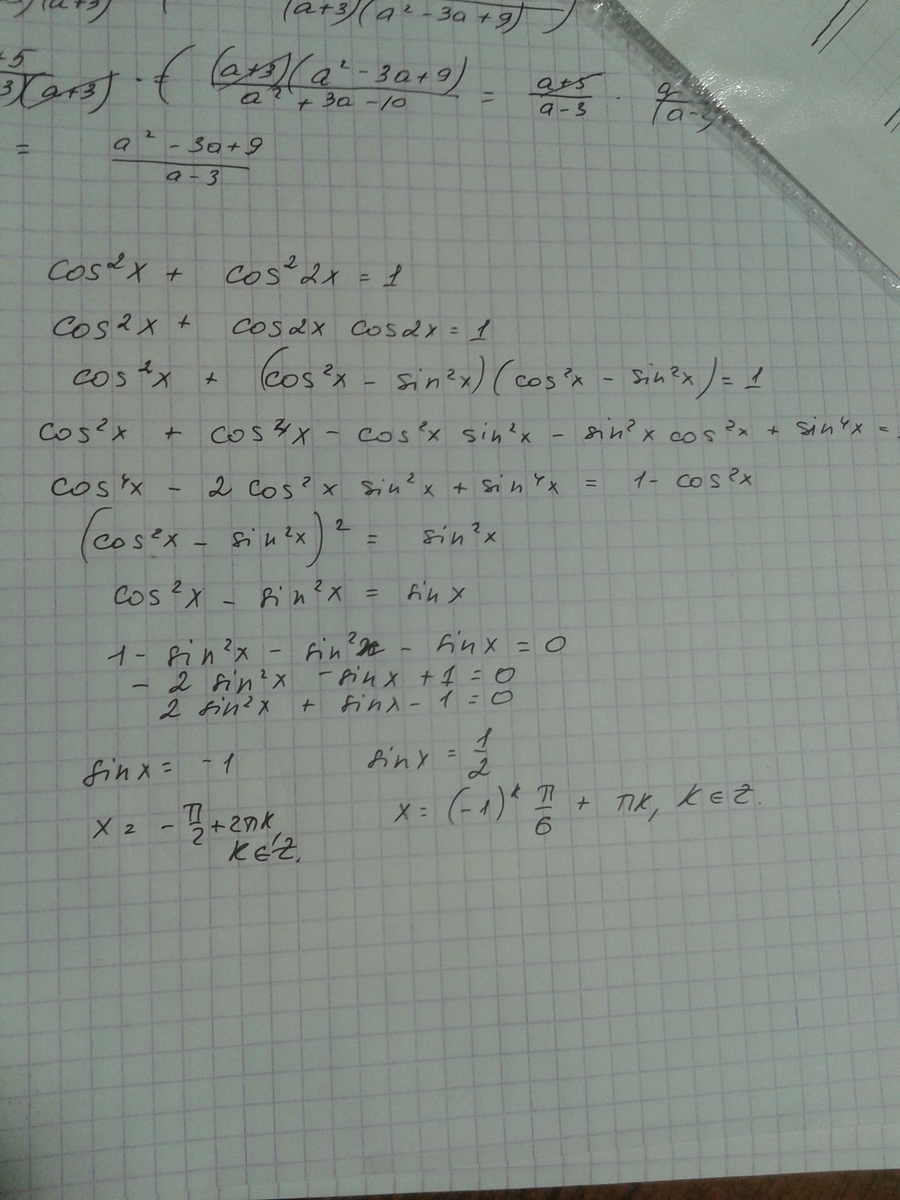 )(a+3) ( (a+3)(a² - 3a + 9) )
+5/3)(a+3) · ( (a+3)(a² - 3a + 9)/a² + 3a - 10 = a+5/a-3 ·
= a² - 3a + 9/a - 3
cos²x + cos²2x = 1
cos²x + cos2x cos2x = 1
cos²x + (cos²x - sin²x)(cos²x - sin²x) = 1
cos²x + cos⁴x - cos²x sin²x - sin²x cos²x + sin⁴x =
cos⁴x - 2 cos²x sin²x + sin⁴x = 1 - cos²x
(cos²x - sin²x)² = sin²x
cos²x - sin²x = sinx
1 - sin²x - sin²x - sinx = 0
- 2 sin²x - sinx + 1 = 0
2 sin²x + sinx - 1 = 0
sinx = -1 sinx = 1/2
x = - π/2 + 2πk, x = (-1)ᵏ π/6 + πk, k ∈ Z.
k ∈ Z.